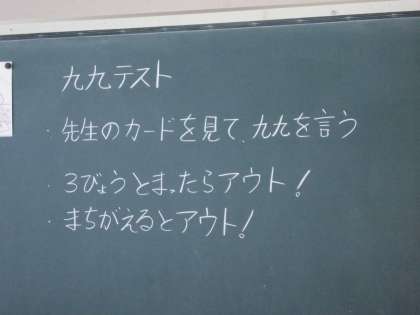 九九テスト
・先生のカードを見て、九九を言う
・3びょうとまったらアウト!
・まちがえるとアウト!